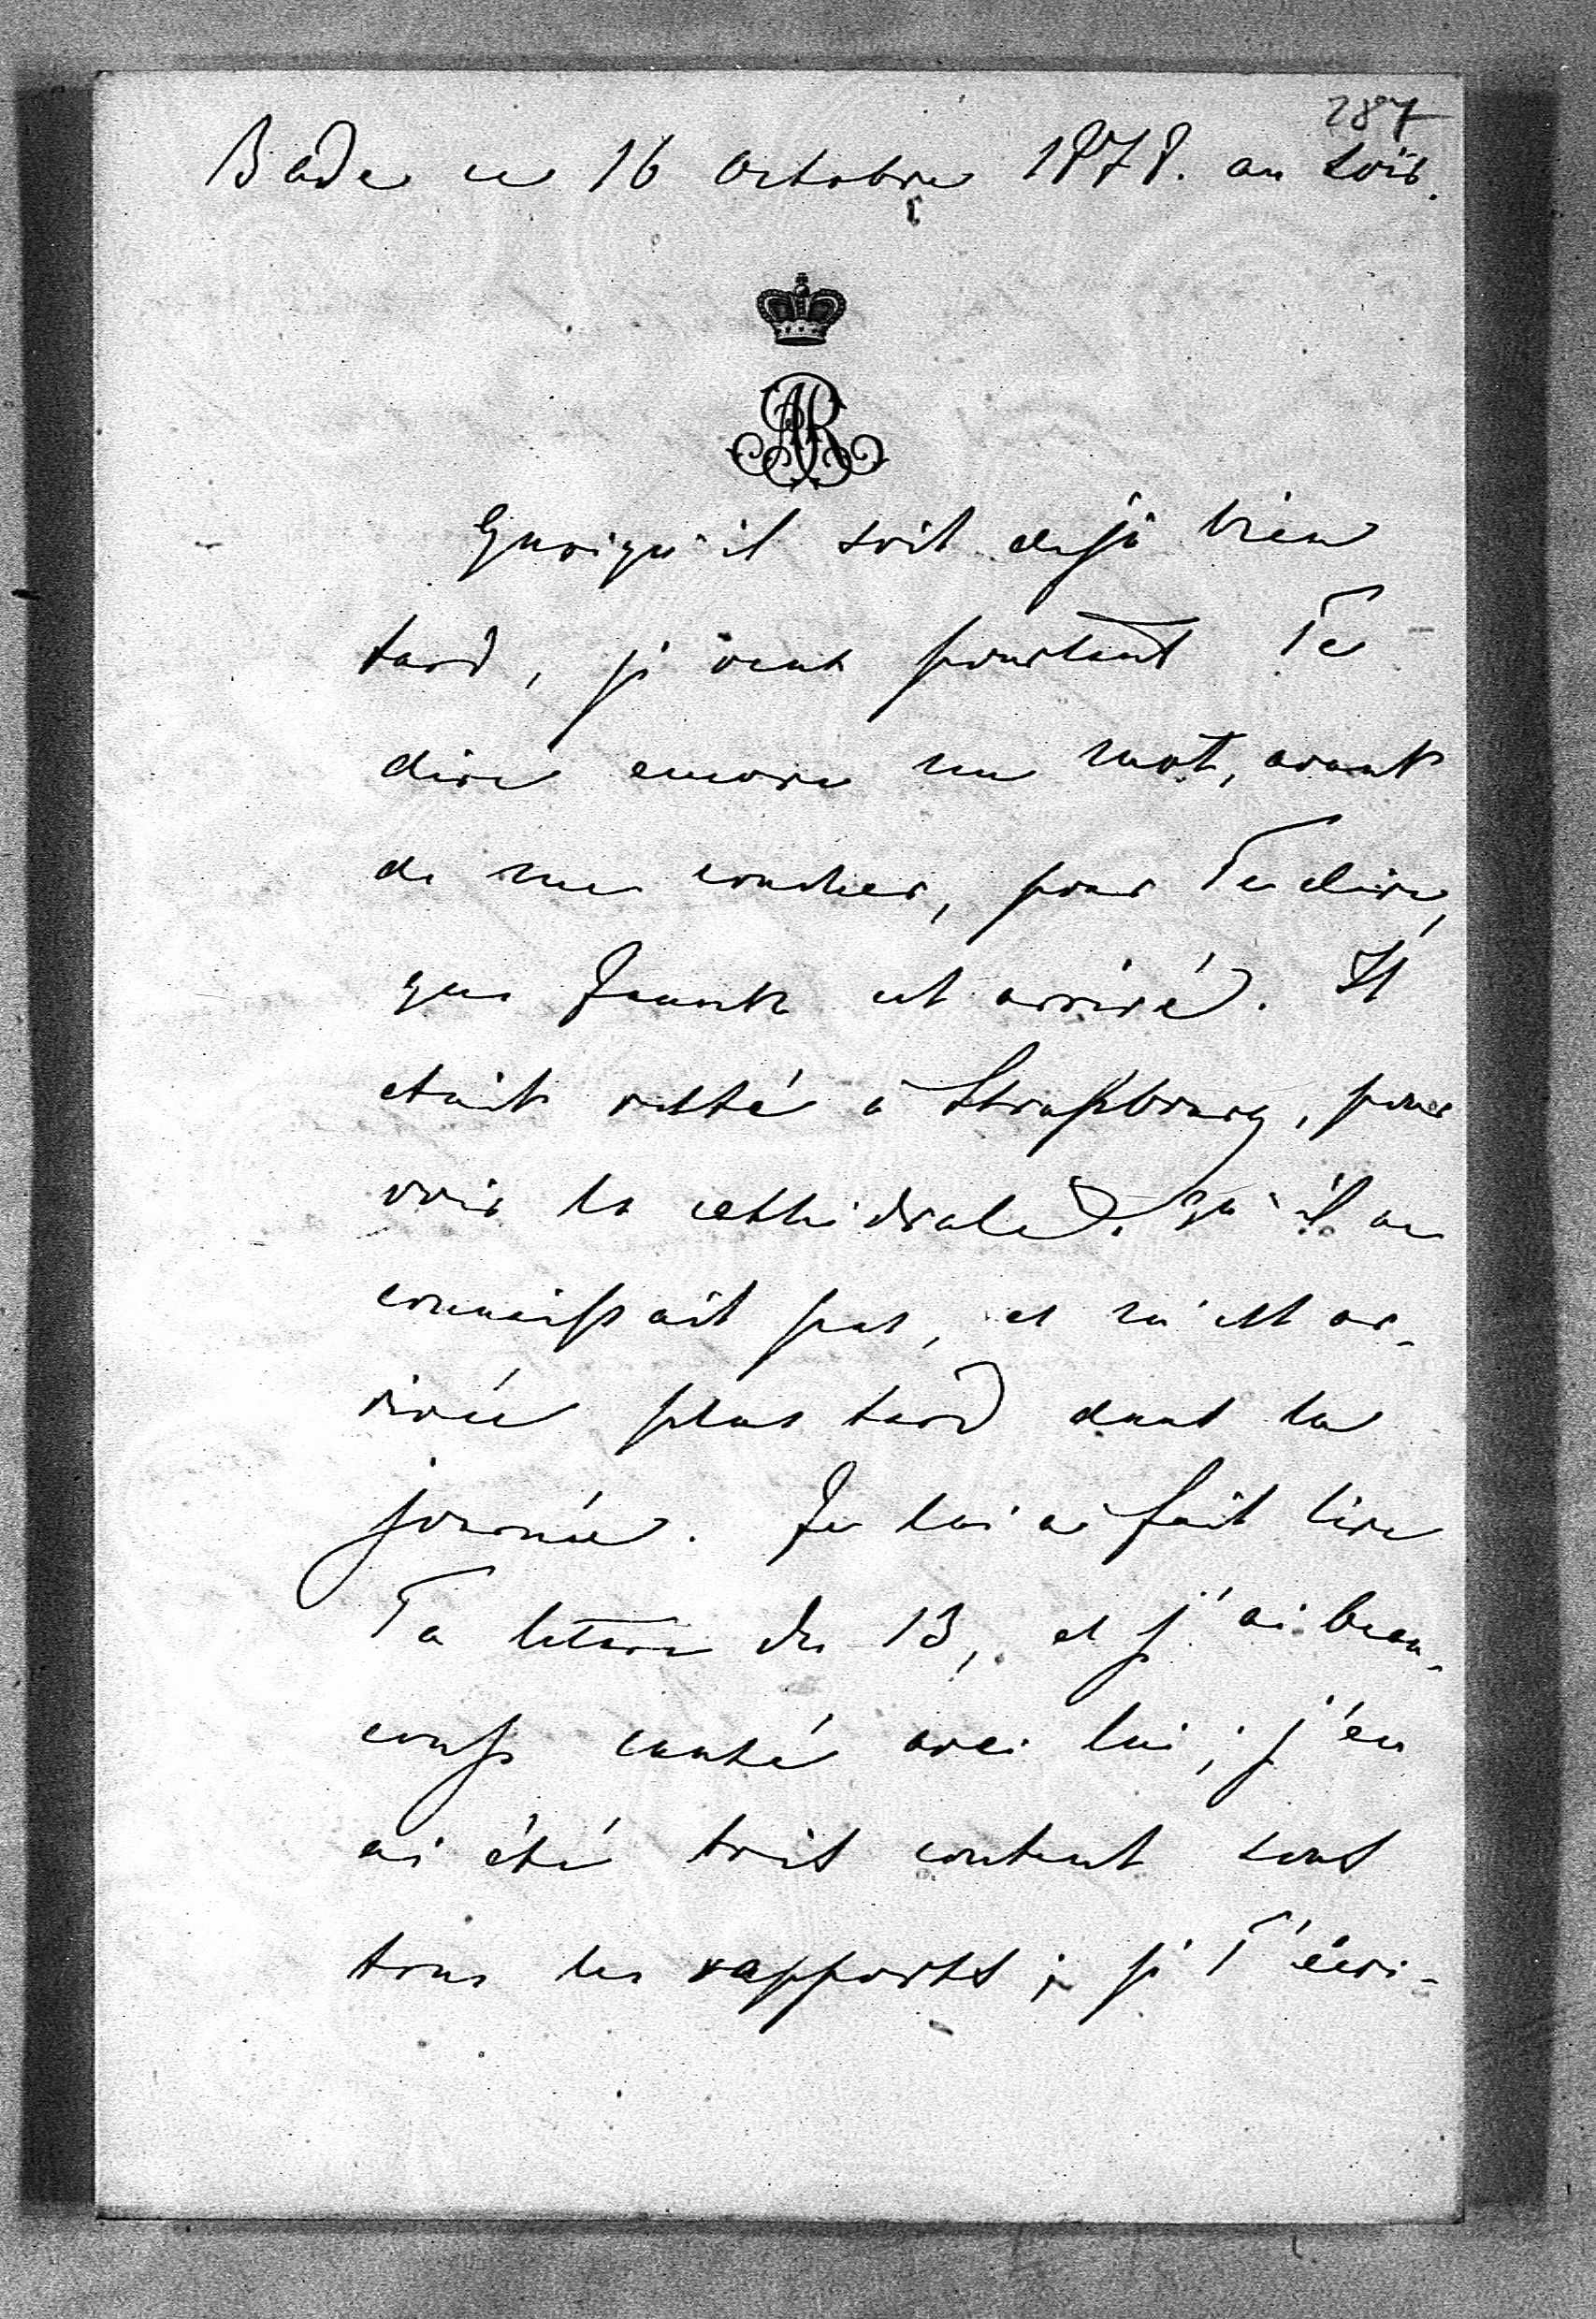 287
Bade ce 16 Octobre 1878. au soir.
AR
Quoiqu'il soit dejà bien
tard, je veux pourtant Te
dire encore un mot, avant
de me coucher, pour Te dire,
que est arrivé. Il
etait resté à Straßbourg, pour
voir la cathédrale, qu'il ne
connaissait pas, et n'est ar-
rivée plus tard dans la
journée. Je lui ai fait lire
Ta lettre du 13, et j'ai beau-
coup causé avec lui; j'en
ai été très content sous
tous les rapports; je T'écri-